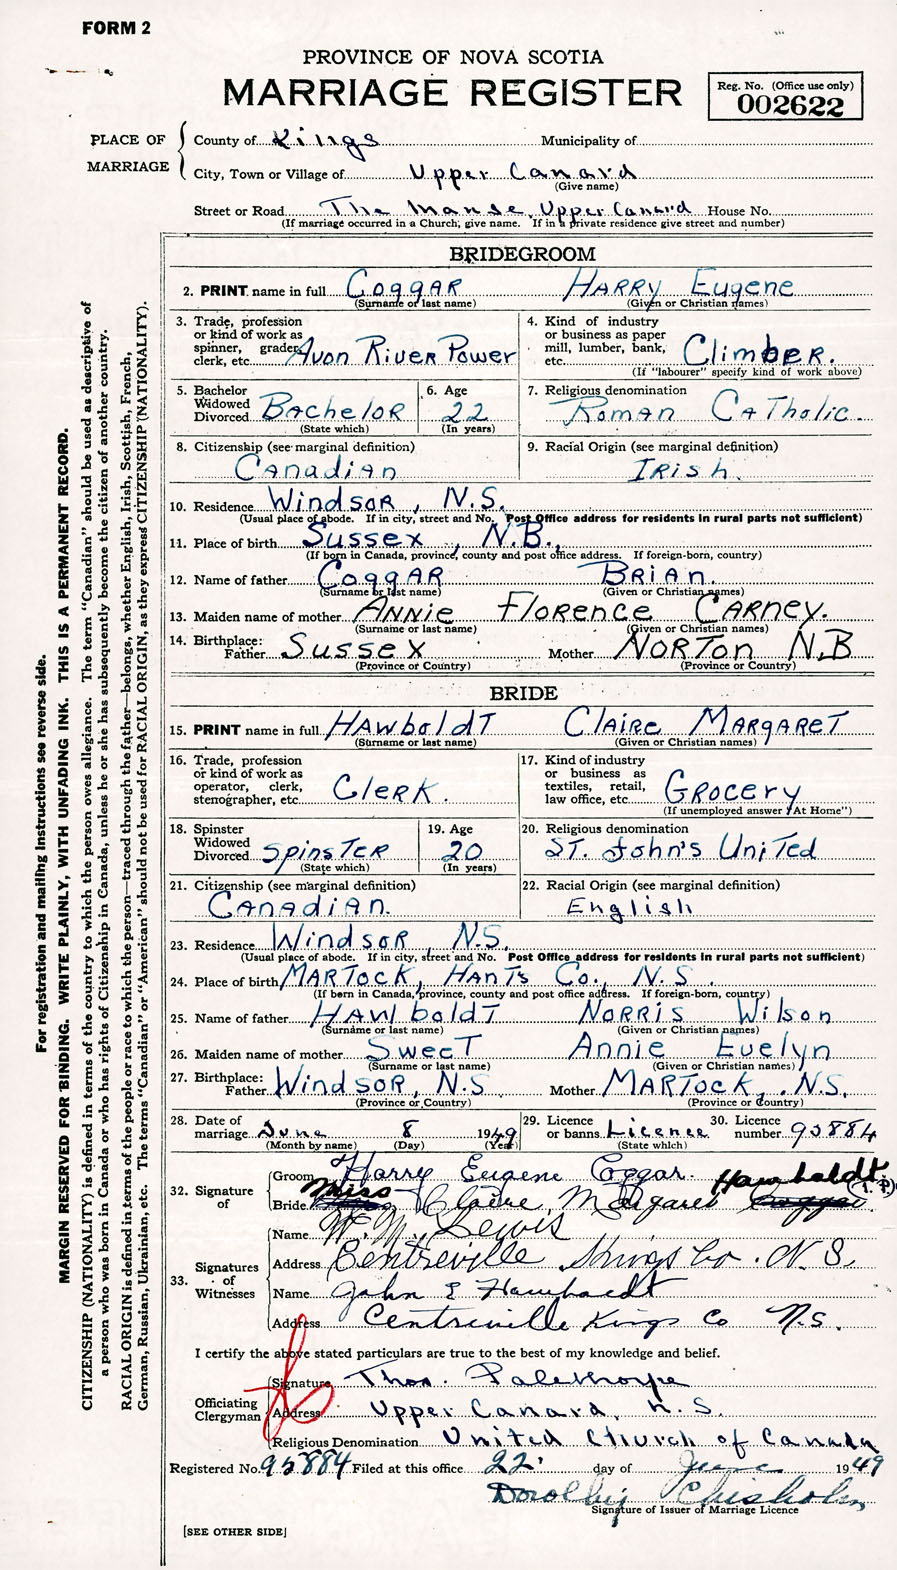 FORM 2
PROVINCE OF NOVA SCOTIA
MARRIAGE REGISTER
Reg. No. (Office use only)
002622
PLACE OF MARRIAGE
County of Kings Municipality of
City, Town or Village of Upper Canard
(Give name)
Street or Road The Manse, Upper Canard House No.
(If marriage occurred in a Church, give name. If in a private residence give street and number)
BRIDEGROOM
2. PRINT name in full Coggar Harry Eugene
(Surname or last name) (Given or Christian names)
3. Trade, profession or kind of work as spinner, grader, clerk, etc. Avon River Power
4. Kind of industry or business as paper mill, lumber, bank, etc. Climber.
(If "labourer" specify kind of work above)
5. Bachelor Widowed Divorced Bachelor
(State which)
6. Age 22
(In years)
7. Religious denomination
Roman Catholic.
8. Citizenship (see marginal definition)
Canadian
9. Racial Origin (see marginal definition)
Irish.
10. Residence Windsor, N.S.
(Usual place of abode. If in city, street and No. Post Office address for residents in rural parts not sufficient)
11. Place of birth Sussex, N.B.,
(If born in Canada, province, county and post office address. If foreign-born, country)
12. Name of father Coggar Brian.
(Surname or last name) (Given or Christian names)
13. Maiden name of mother Annie Florence Carney.
(Surname or last name) (Given or Christian names)
14. Birthplace: Father Sussex Mother Norton N.B
(Province or Country) (Province or Country)
BRIDE
15. PRINT name in full Hawboldt Claire Margaret
(Surname or last name) (Given or Christian names)
16. Trade, profession or kind of work as operator, clerk, stenographer, etc. Clerk.
17. Kind of industry or business as textiles, retail, law office, etc. Grocery
(If unemployed answer "At Home")
18. Spinster Widowed Divorced Spinster
(State which)
19. Age 20
(In years)
20. Religious denomination
St. John's United
21. Citizenship (see marginal definition)
Canadian.
22. Racial Origin (see marginal definition)
English
23. Residence Windsor, N.S.
(Usual place of abode. If in city, street and No. Post Office address for residents in rural parts not sufficient)
24. Place of birth Martock, Hants Co., N.S.
(If born in Canada, province, county and post office address. If foreign-born, country)
25. Name of father Hawboldt Norris Wilson
(Surname or last name) (Given or Christian names)
26. Maiden name of mother Sweet Annie Evelyn
(Surname or last name) (Given or Christian names)
27. Birthplace: Father Windsor, N.S Mother Martock, N.S.
(Province or Country) (Province or Country)
28. Date of marriage June 8 1949
(Month by name) (Day) (Year)
29. Licence or banns Licence
(State which)
30. Licence number 95884
32. Signature of
Groom Harry Eugene Coggar.
Bride Miss Claire Margaret Hawboldt (T.P.)
33. Signatures of Witnesses
Name W. M. Lewis
Address Centreville Kings Co. N.S.
Name John E Hawboldt
Address Centreville Kings Co N.S.
I certify the above stated particulars are true to the best of my knowledge and belief.
Officiating Clergyman
Signature Thos. Palethorpe
Address Upper Canard, N.S.
Religious Denomination United Church of Canada
Registered No. 95884 Filed at this office 22. day of June 1949
Dorothy Chisholm
Signature of Issuer of Marriage Licence
[SEE OTHER SIDE]
For registration and mailing instructions see reverse side.
MARGIN RESERVED FOR BINDING. WRITE PLAINLY, WITH UNFADING INK. THIS IS A PERMANENT RECORD.
CITIZENSHIP (NATIONALITY) is defined in terms of the country to which the person owes allegiance. The term "Canadian" should be used as descriptive of
a person who was born in Canada or who has rights of Citizenship in Canada, unless he or she has subsequently become the citizen of another country.
RACIAL ORIGIN is defined in terms of the people or race to which the person—traced through the father—belongs, whether English, Irish, Scottish, French,
German, Russian, Ukrainian, etc. The terms "Canadian" or "American" should not be used for RACIAL ORIGIN, as they express CITIZENSHIP (NATIONALITY).